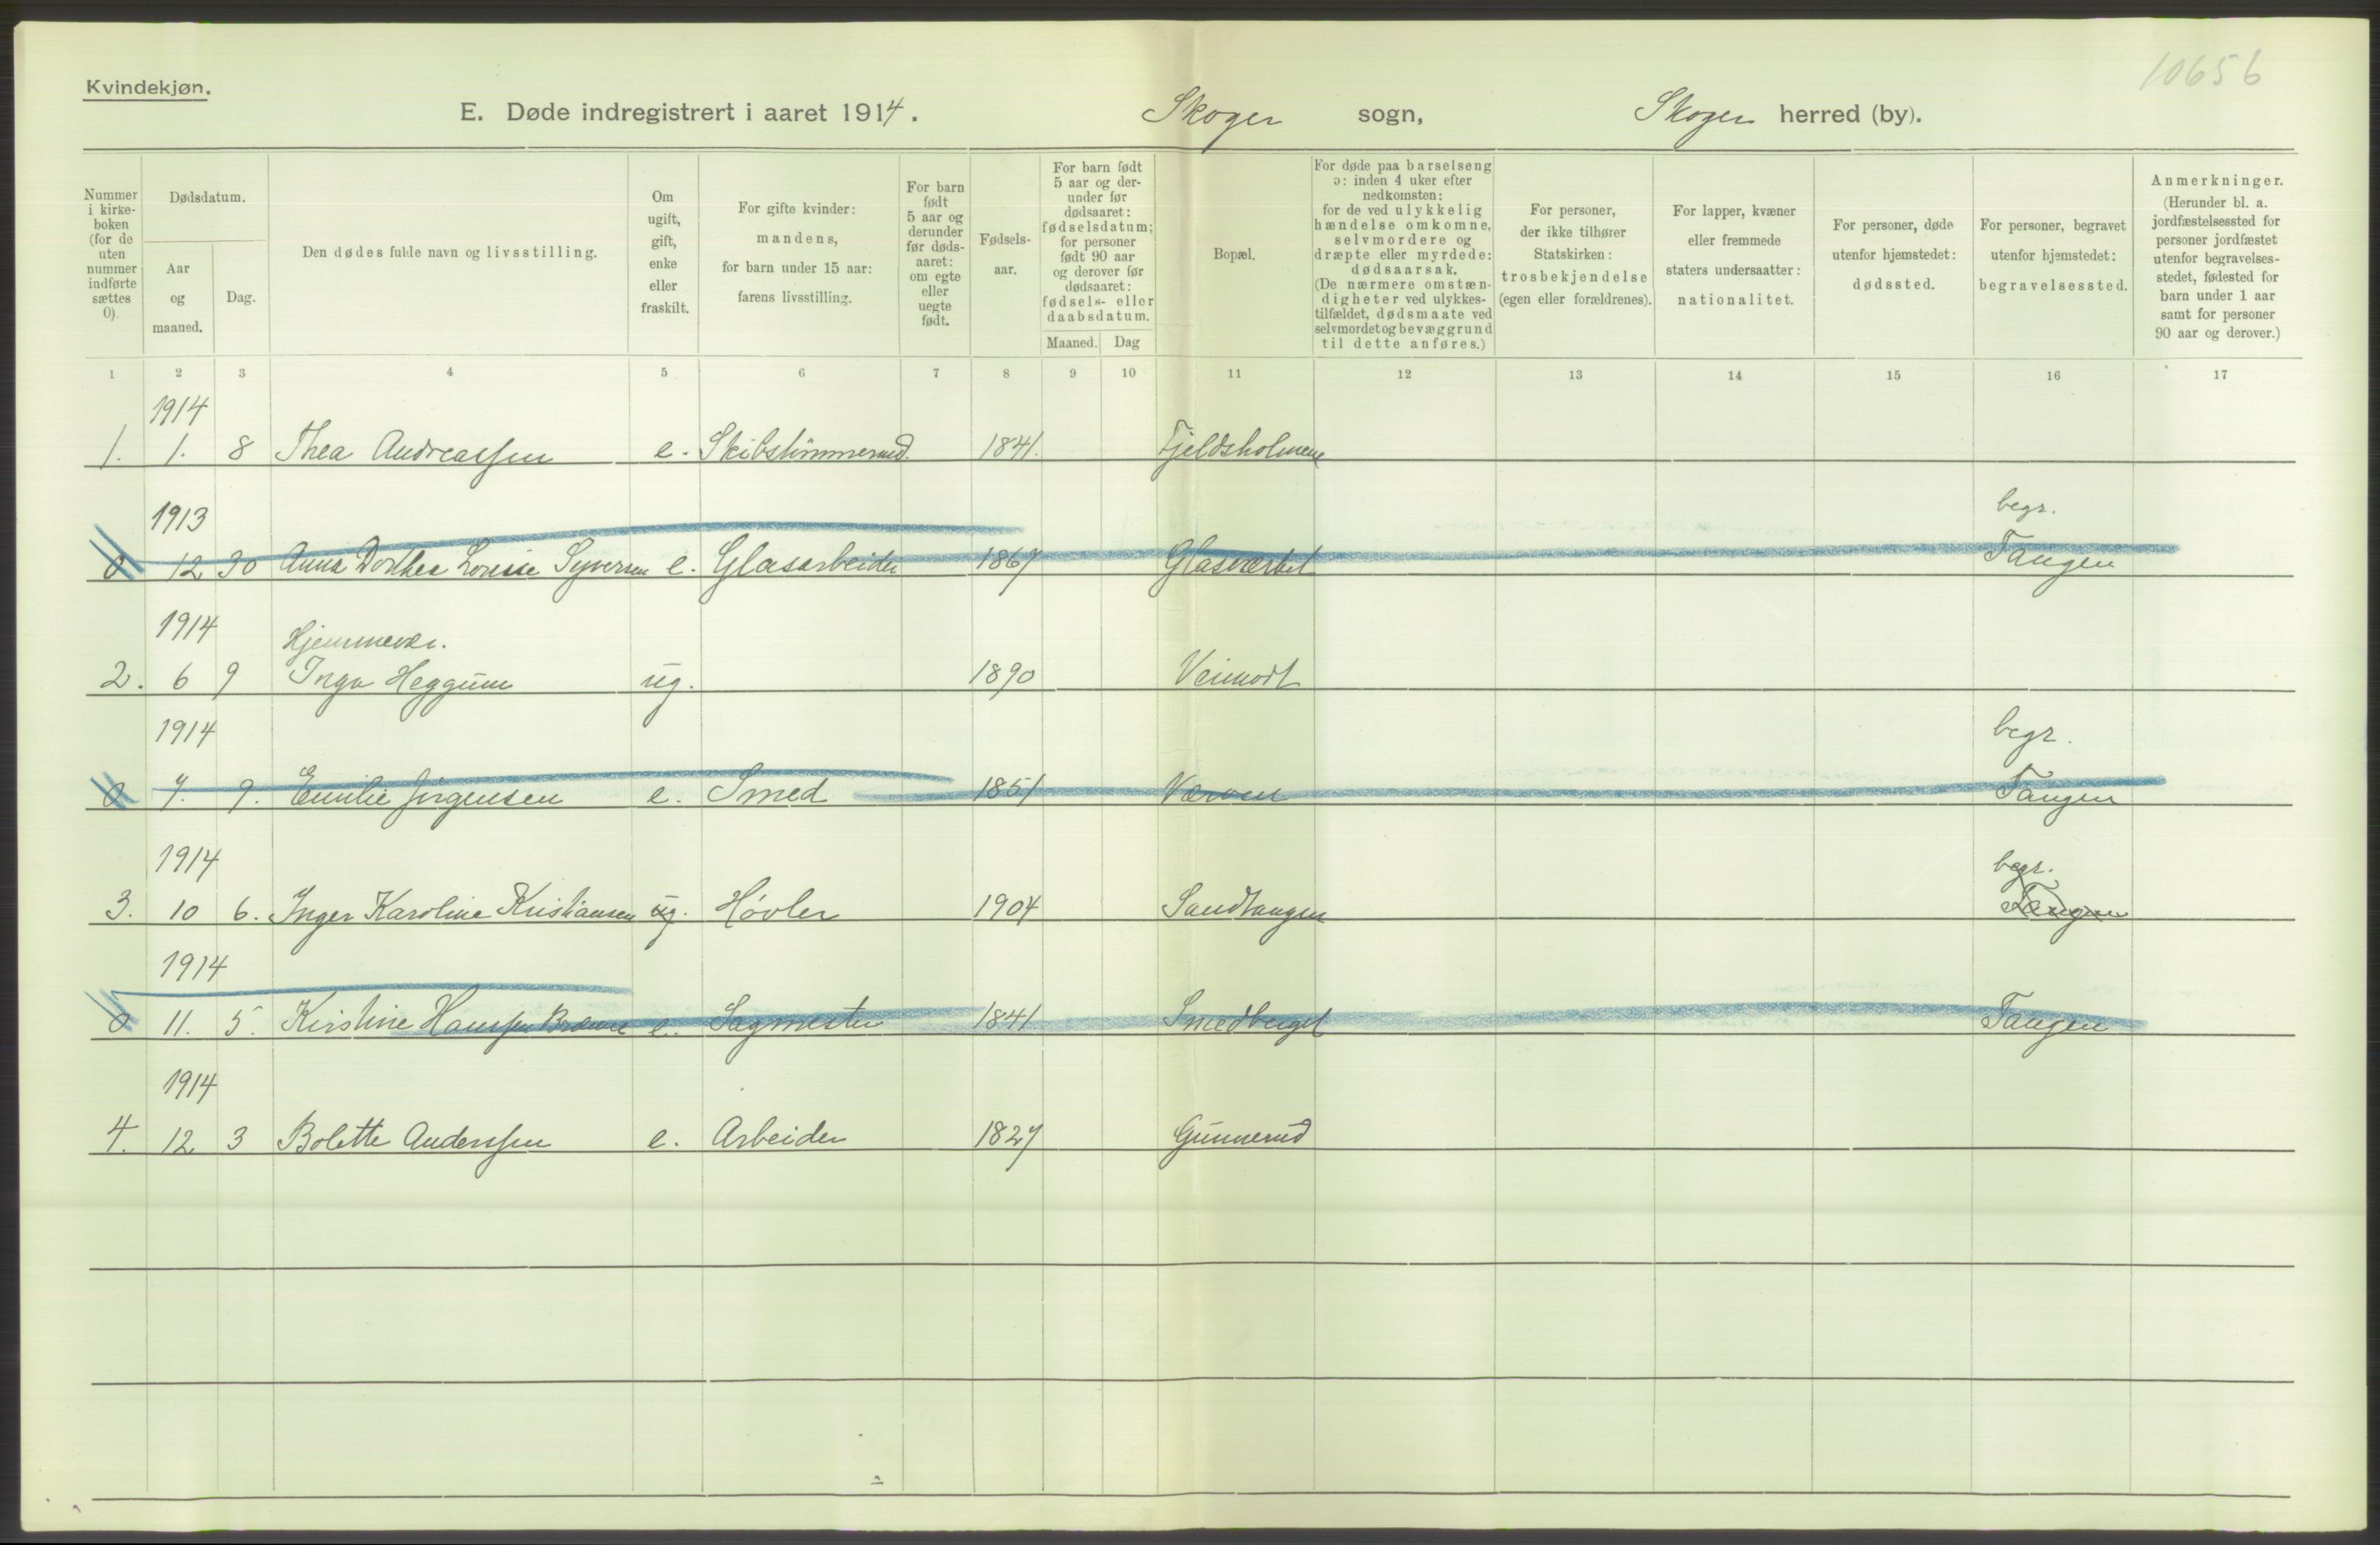 10656
Kvindekjøn.
E. Døde indregistrert i aaret 1914. Skoger sogn, Skoger herred (by).
Nummer
i kirke-
boken
(for de
uten
nummer
indførte
sættes
0).
Dødsdatum.
Aar
og
maaned.
Dag.
Den dødes fulde navn og livsstilling.
Om
ugift,
gift,
enke
eller
fraskilt.
For gifte kvinder:
mandens,
for barn under 15 aar:
farens livsstilling.
For barn
født
5 aar og
derunder
før døds-
aaret:
om egte
eller
uegte
født.
Fødsels-
aar.
For barn født
5 aar og der-
under før
dødsaaret:
fødselsdatum;
for personer
født 90 aar
og derover før
dødsaaret:
fødsels- eller
daabsdatum.
Maaned. Dag
Bopæl.
For døde paa barselseng
ɔ: inden 4 uker efter
nedkomsten:
for de ved ulykkelig
hændelse omkomne,
selvmordere og
dræpte eller myrdede:
dødsaarsak.
(De nærmere omstæn-
digheter ved ulykkes-
tilfældet, dødsmaate ved
selvmordet og bevæggrund
til dette anføres.)
For personer,
der ikke tilhører
Statskirken:
trosbekjendelse
(egen eller forældrenes).
For lapper, kvæner
eller fremmede
staters undersaatter:
nationalitet.
For personer, døde
utenfor hjemstedet:
dødssted.
For personer, begravet
utenfor hjemstedet:
begravelsessted.
Anmerkninger.
(Herunder bl. a.
jordfæstelsessted for
personer jordfæstet
utenfor begravelses-
stedet, fødested for
barn under 1 aar
samt for personer
90 aar og derover.)
1 2 3 4 5 6 7 8 9 10 11 12 13 14 15 16 17
1914
1. 1. 8 Thea Andreassen e. Skibstömmermd. 1841. Fjeldsholmene
1913 begr.
0 12 30 Anna Dorthea Lovise Syversen e. Glasarbeider 1867 Glasverket Tangen
1914 Hjemmevær.
2. 6 9 Inga Heggum ug. 1890 Veimodt
1914 begr.
0 7. 9. Emilie Jörgensen e. Smed 1851 Værven Tangen
1914 begr.
3. 10 6. Inger Karoline Kristiansen ug. Høvler 1904 Sandtangen Tangen
1914
0 11. 5. Kirstine Hanssen e. Sagmester 1841 Smedberget Tangen
1914
4. 12 3 Bolette Anderssen e. Arbeider 1827 Gunnerud